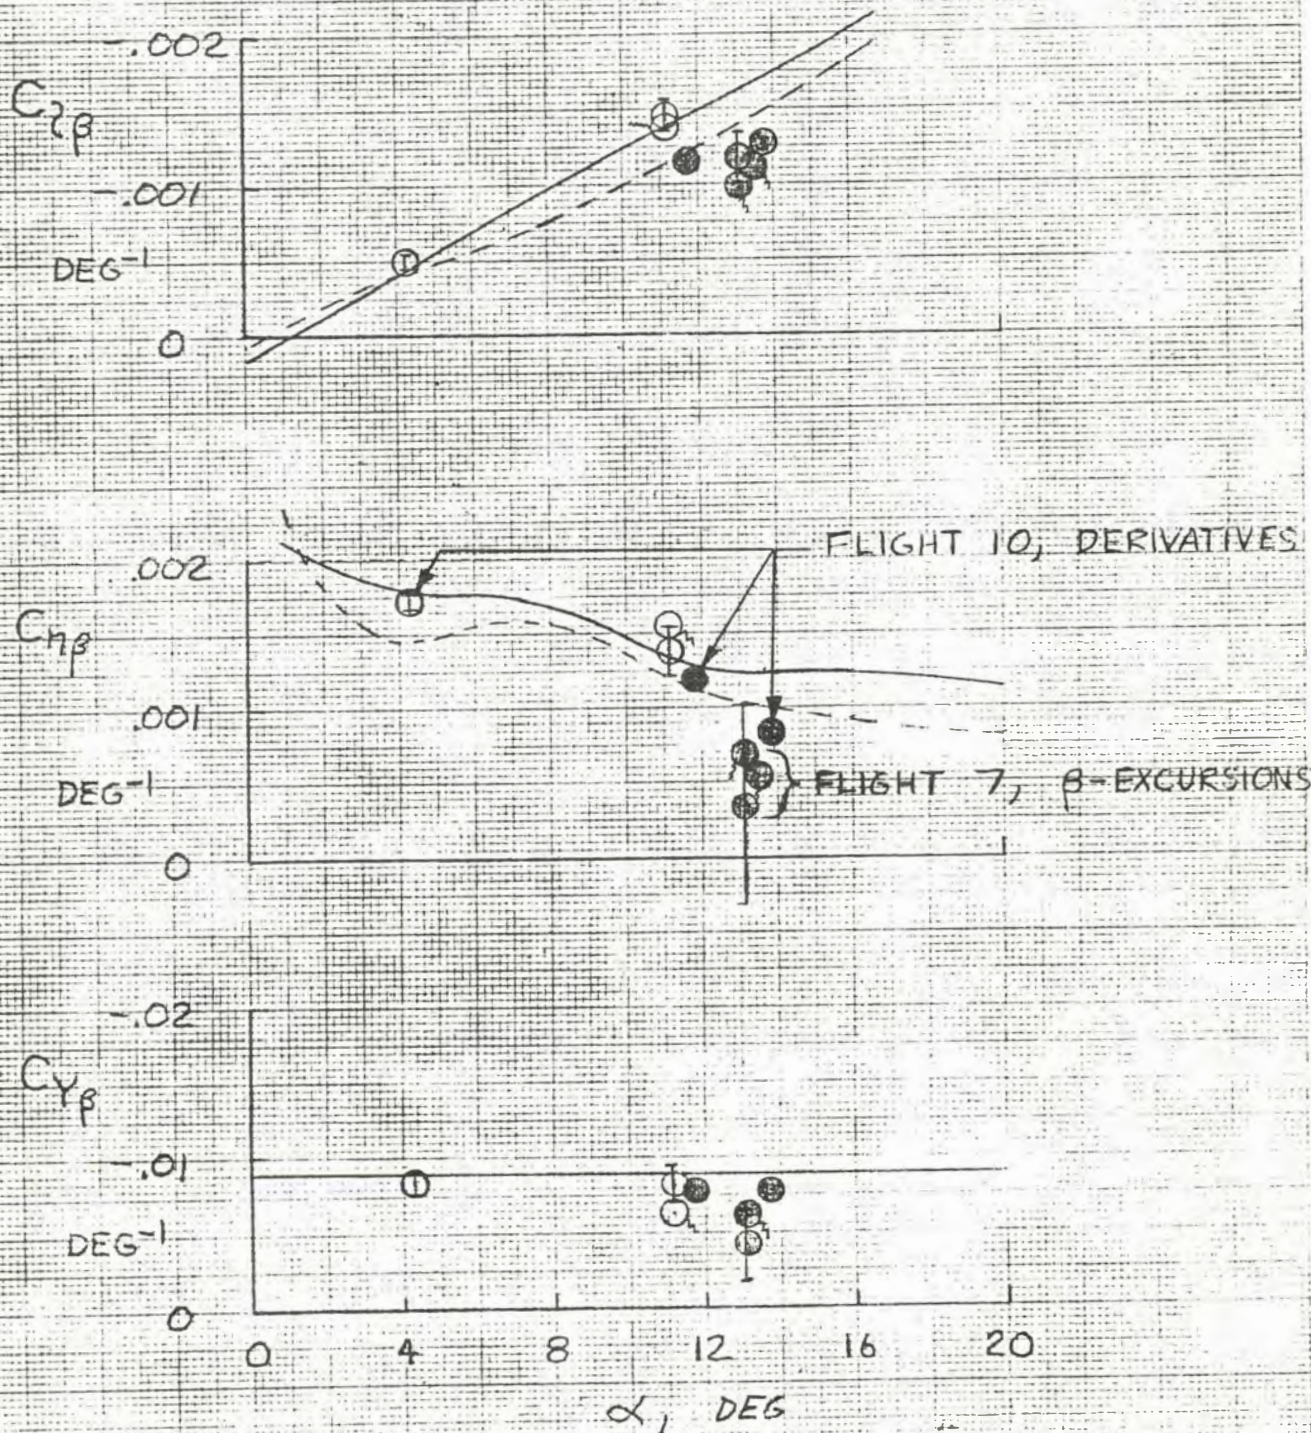 -.002
Clβ
-.001
DEG⁻¹
0
FLIGHT 10, DERIVATIVES
.002
Cnβ
.001
DEG⁻¹
FLIGHT 7, β-EXCURSIONS
0
-.02
CYβ
-.01
DEG⁻¹
0
0 4 8 12 16 20
α, DEG